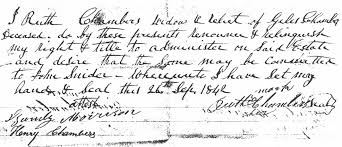 I Ruth Chambers Widow & Relict of Giles Chambers
Deceased. do by these presents Renounce & Relinquish
my right & title to administer on Said Estate
and desire that the Same may be Committed
to John Snider - Whereunto I have Set my
hand & Seal this 26th Sep. 1842
mark
attest
Ruth Chambers Seal
Morrison
Henry Chambers